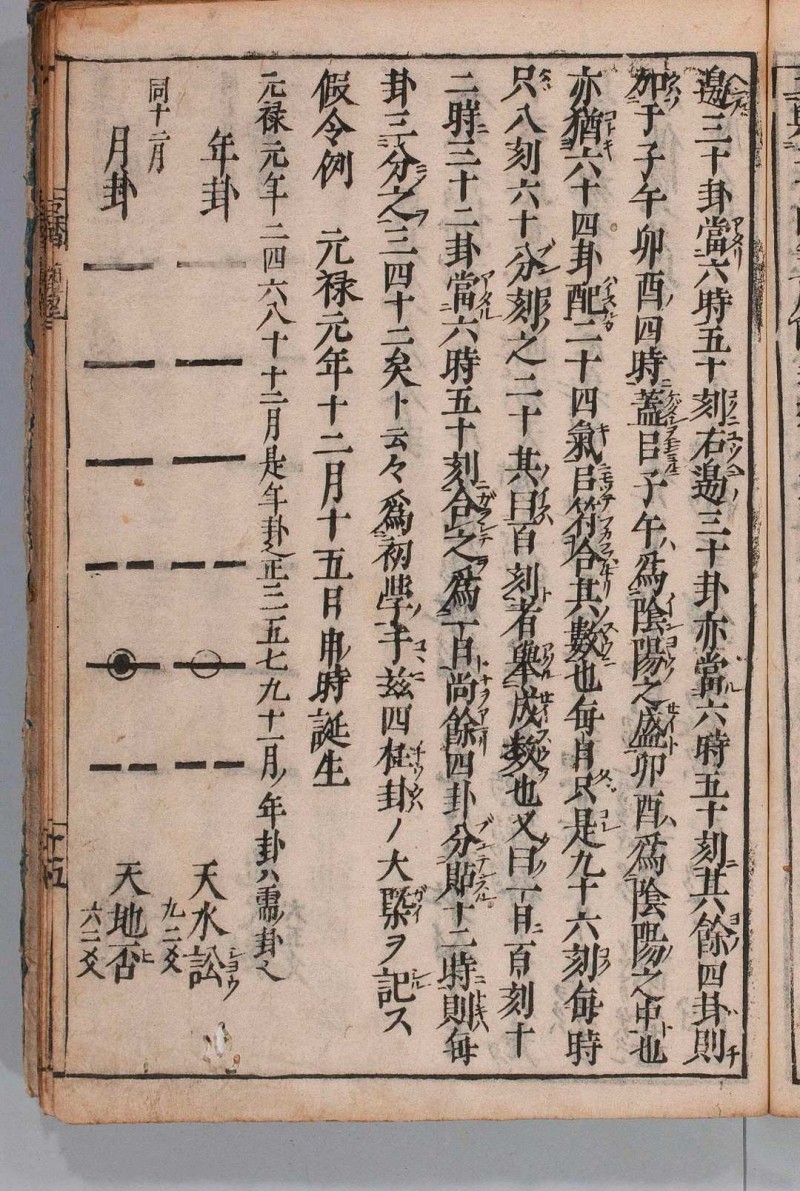 邊三十卦當六時五十刻右邊三十卦亦當六時五十刻其餘四卦則
加于子午卯酉四時蓋㠯子午爲陰陽之盛卯酉爲陰陽之中也
亦猶六十四卦配二十四氣㠯符合其數也每日只是九十六刻每時
只八刻六十分刻之二十其曰百刻者擧成數也又曰一日百刻十
二時三十二卦當六時五十刻合之爲一百尚餘四卦分貼十二時則每
卦三分之三四十二矣ト云々爲初學于茲四柱卦ノ大槩ヲ記ス
假令例 元禄元年十二月十五日申ノ時誕生
元禄元年二四六八十十二月是年卦之正三五七九十一月ノ年卦ハ需ノ卦之
年卦 天水訟 九二爻
同十二月
月卦 天地否 六二爻